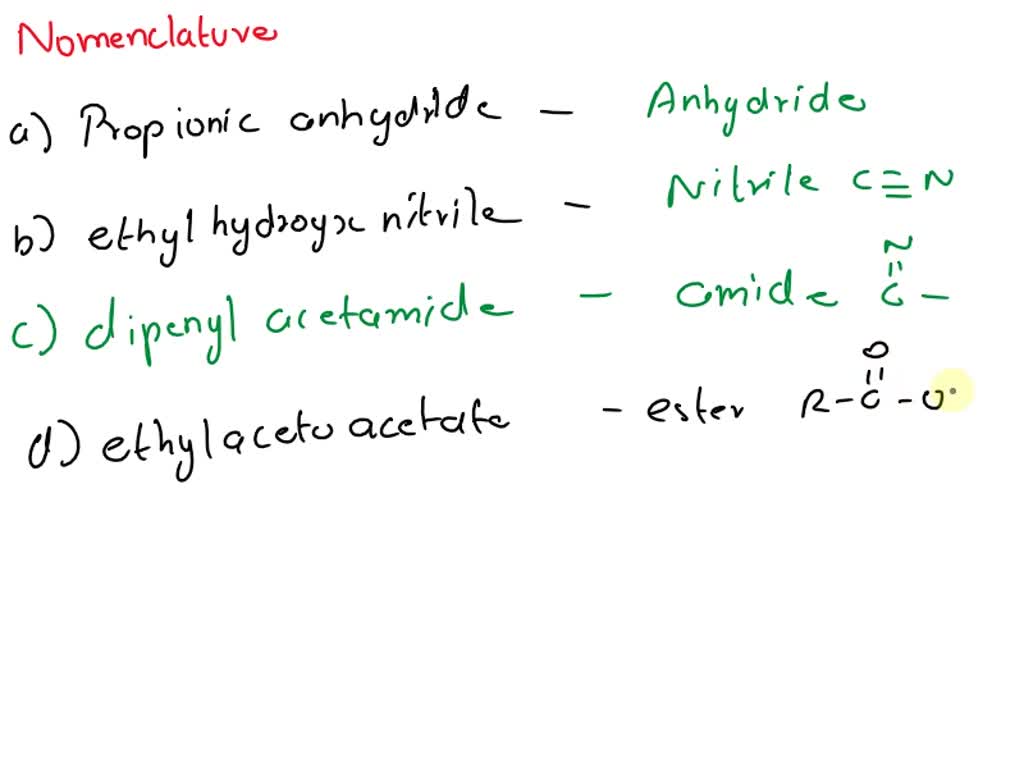 Nomenclature
a) Propionic anhydride - Anhydride
b) ethyl hydroxyx nitrile - Nitrile C≡N
N
c) dipenyl acetamide - amide C -
O
d) ethylaceto acetate - ester R-C-O